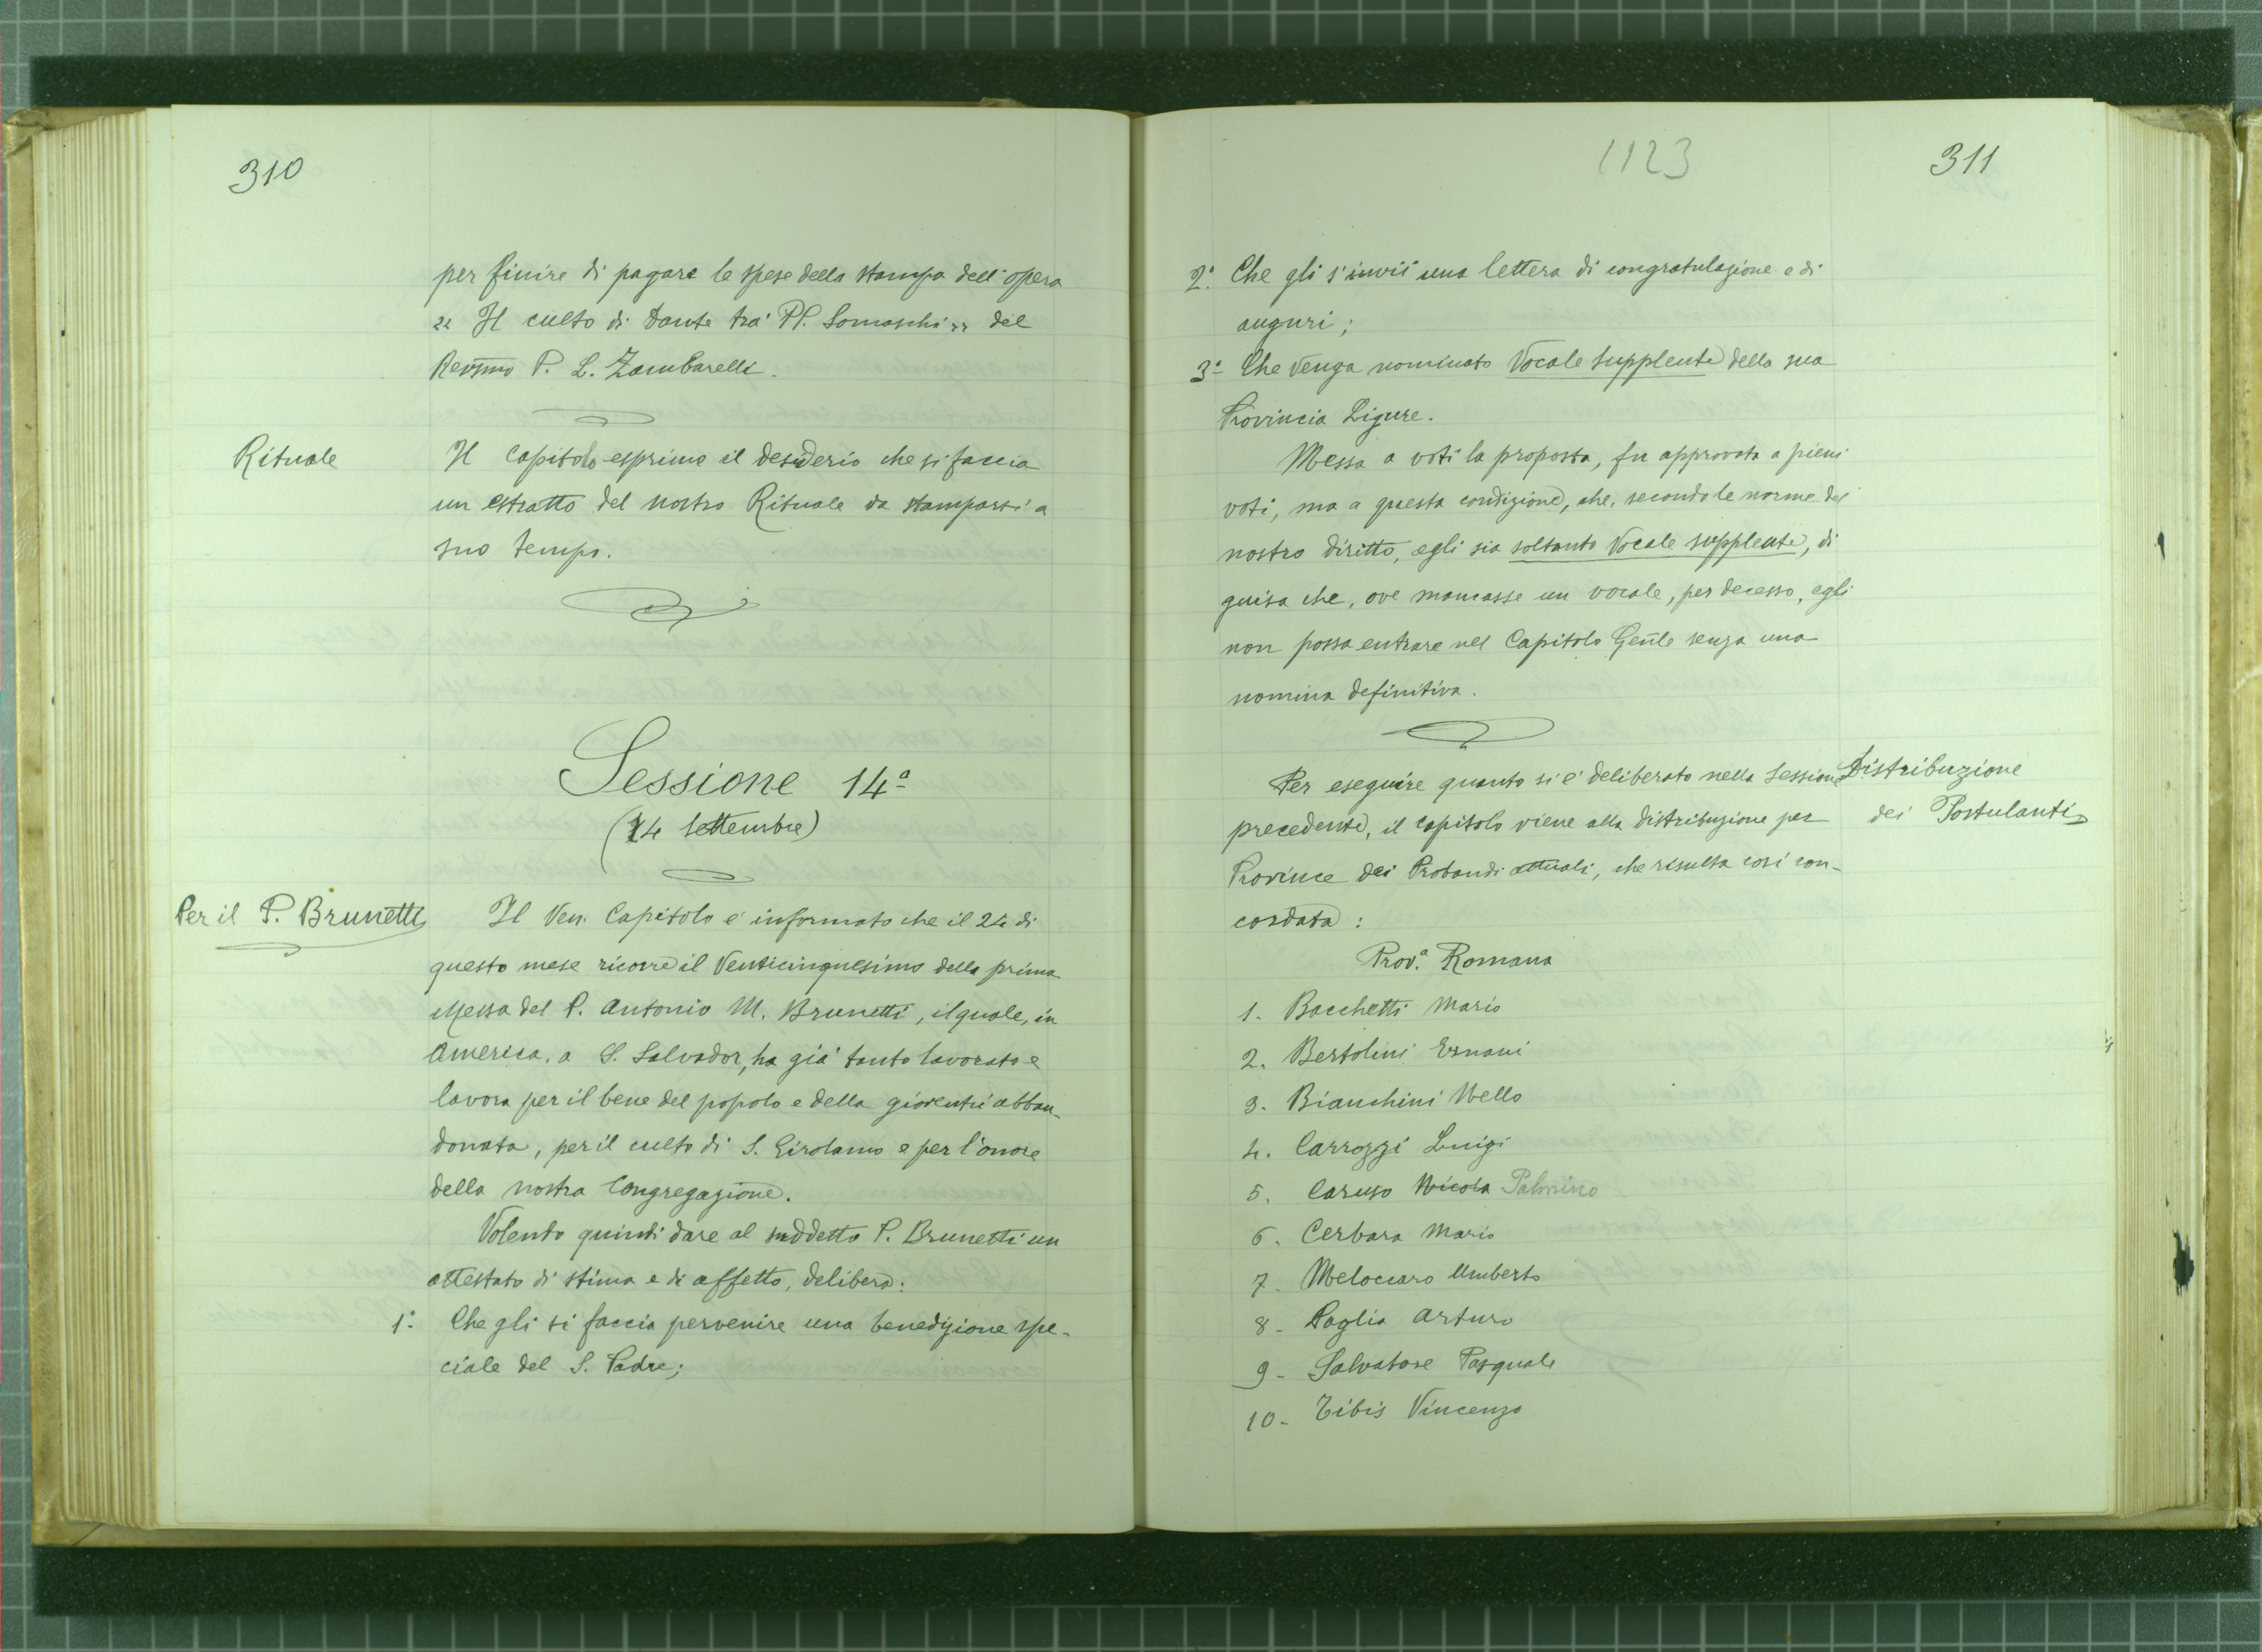 310
per finire di pagare le spese della stampa dell'opera
„ Il culto di Dante tra' PP. Somaschi „ del
Rev̄smo P. L. Zambarelli.
Rituale
Il Capitolo esprime il desiderio che si faccia
un estratto del nostro Rituale da stamparsi a
suo tempo.
Sessione 14ª
(14 Settembre)
Per il P. Brunetti
Il Ven. Capitolo e' informato che il 24 di
questo mese ricorre il Venticinquesimo della prima
Messa del P. Antonio M. Brunetti, il quale, in
America, a S. Salvador, ha gia' tanto lavorato e
lavora per il bene del popolo e della gioventu' abban-
donata, per il culto di S. Girolamo e per l'onore
della nostra Congregazione.
Volendo quindi dare al suddetto P. Brunetti un
attestato di stima e di affetto, delibera:
1.° Che gli si faccia pervenire una benedizione spe-
ciale del S. Padre;
1123
311
2.° Che gli s'invii una lettera di congratulazione e di
auguri;
3.° Che venga nominato Vocale supplente della sua
Provincia Ligure.
Messa a voti la proposta, fu approvata a pieni
voti, ma a questa condizione, che, secondo le norme del
nostro diritto, egli sia soltanto Vocale supplente, di
guisa che, ove mancasse un vocale, per decesso, egli
non possa entrare nel Capitolo Gen̄le senza una
nomina definitiva.
Distribuzione
dei Postulanti
Per eseguire quanto si e' deliberato nella Sessione
precedente, il Capitolo viene alla distribuzione per
Province dei Probandi attuali, che risulta cosi con-
cordata:
Prov.ª Romana
1. Bacchetti Mario
2. Bertolini Ernani
3. Bianchini Nello
4. Carrozzi Luigi
5. Caruso Nicola Palmino
6. Cerbara Mario
7. Meloccaro Umberto
8. Paglia Arturo
9. Salvatore Pasquale
10. Tibis Vincenzo